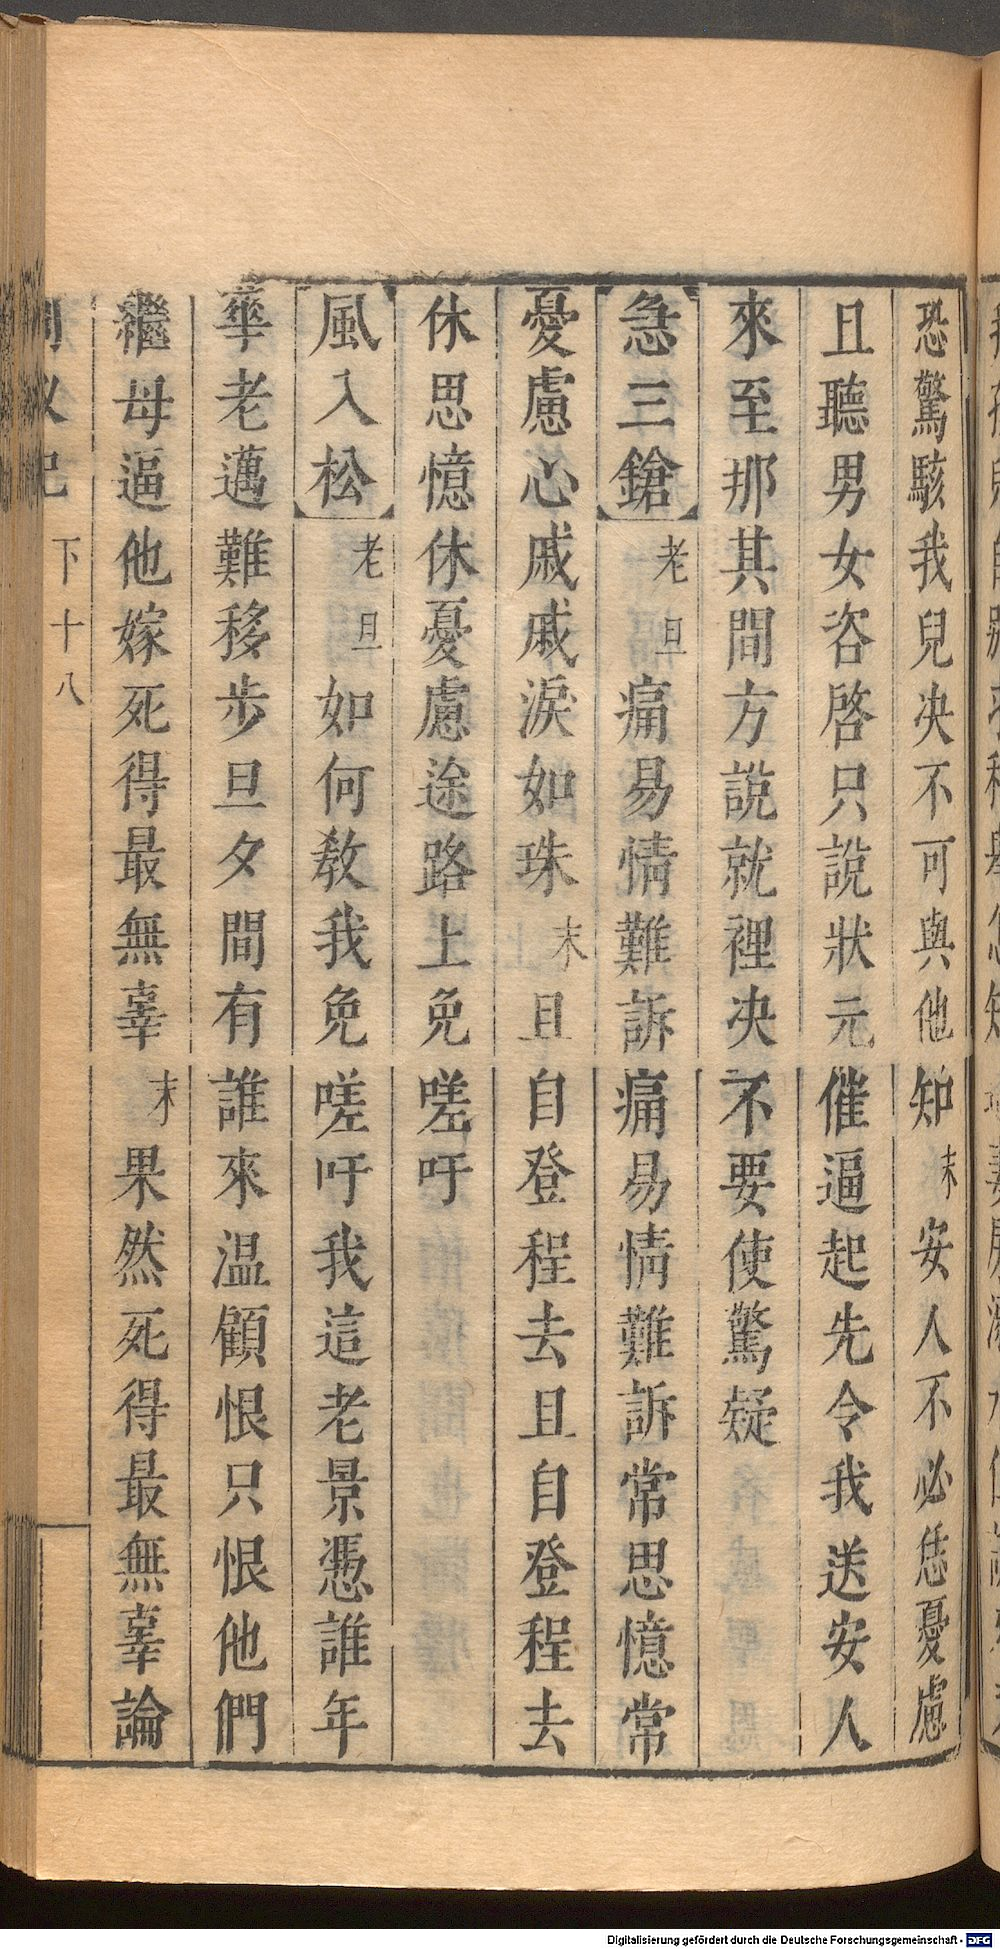 恐驚駭我兒决不可與他知末安人不必恁憂慮
且聽男女咨啓只說狀元催逼起先令我送安人
來至那其間方說就裡决不要使驚疑
急三鎗老旦痛易情難訴痛易情難訴常思憶常
憂慮心戚戚淚如珠末且自登程去且自登程去
休思憶休憂慮途路上免嗟吁
風入松老旦如何敎我免嗟吁我這老景憑誰年
華老邁難移步旦夕間有誰來温顧恨只恨他們
繼母逼他嫁死得最無辜末果然死得最無辜論
下十八
Digitalisierung gefördert durch die Deutsche Forschungsgemeinschaft - DFG